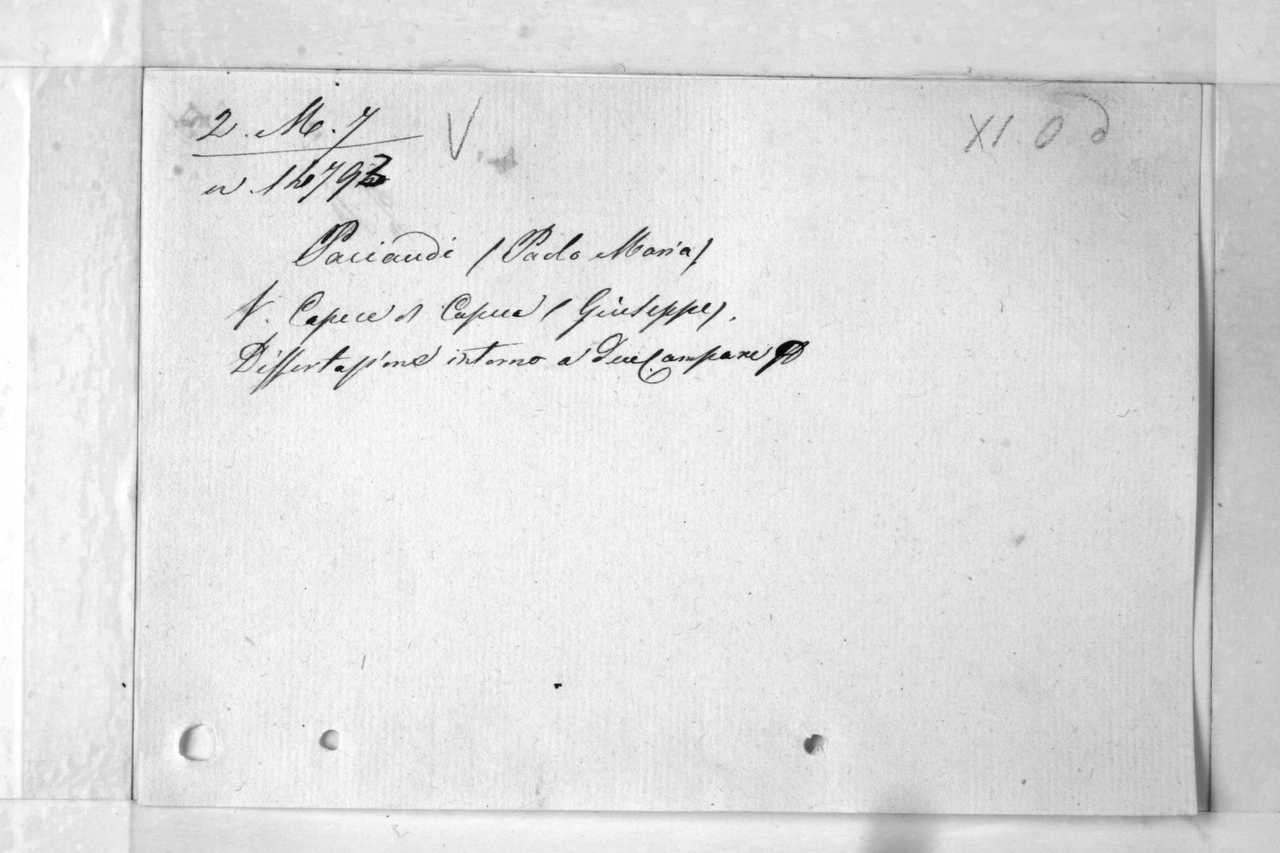 2. M. 7
V.
XI. O. d
n. 14793
Paciaudi (Paolo Maria)
V. Capece di Capua (Giuseppe).
Dissertazione intorno a due Campane